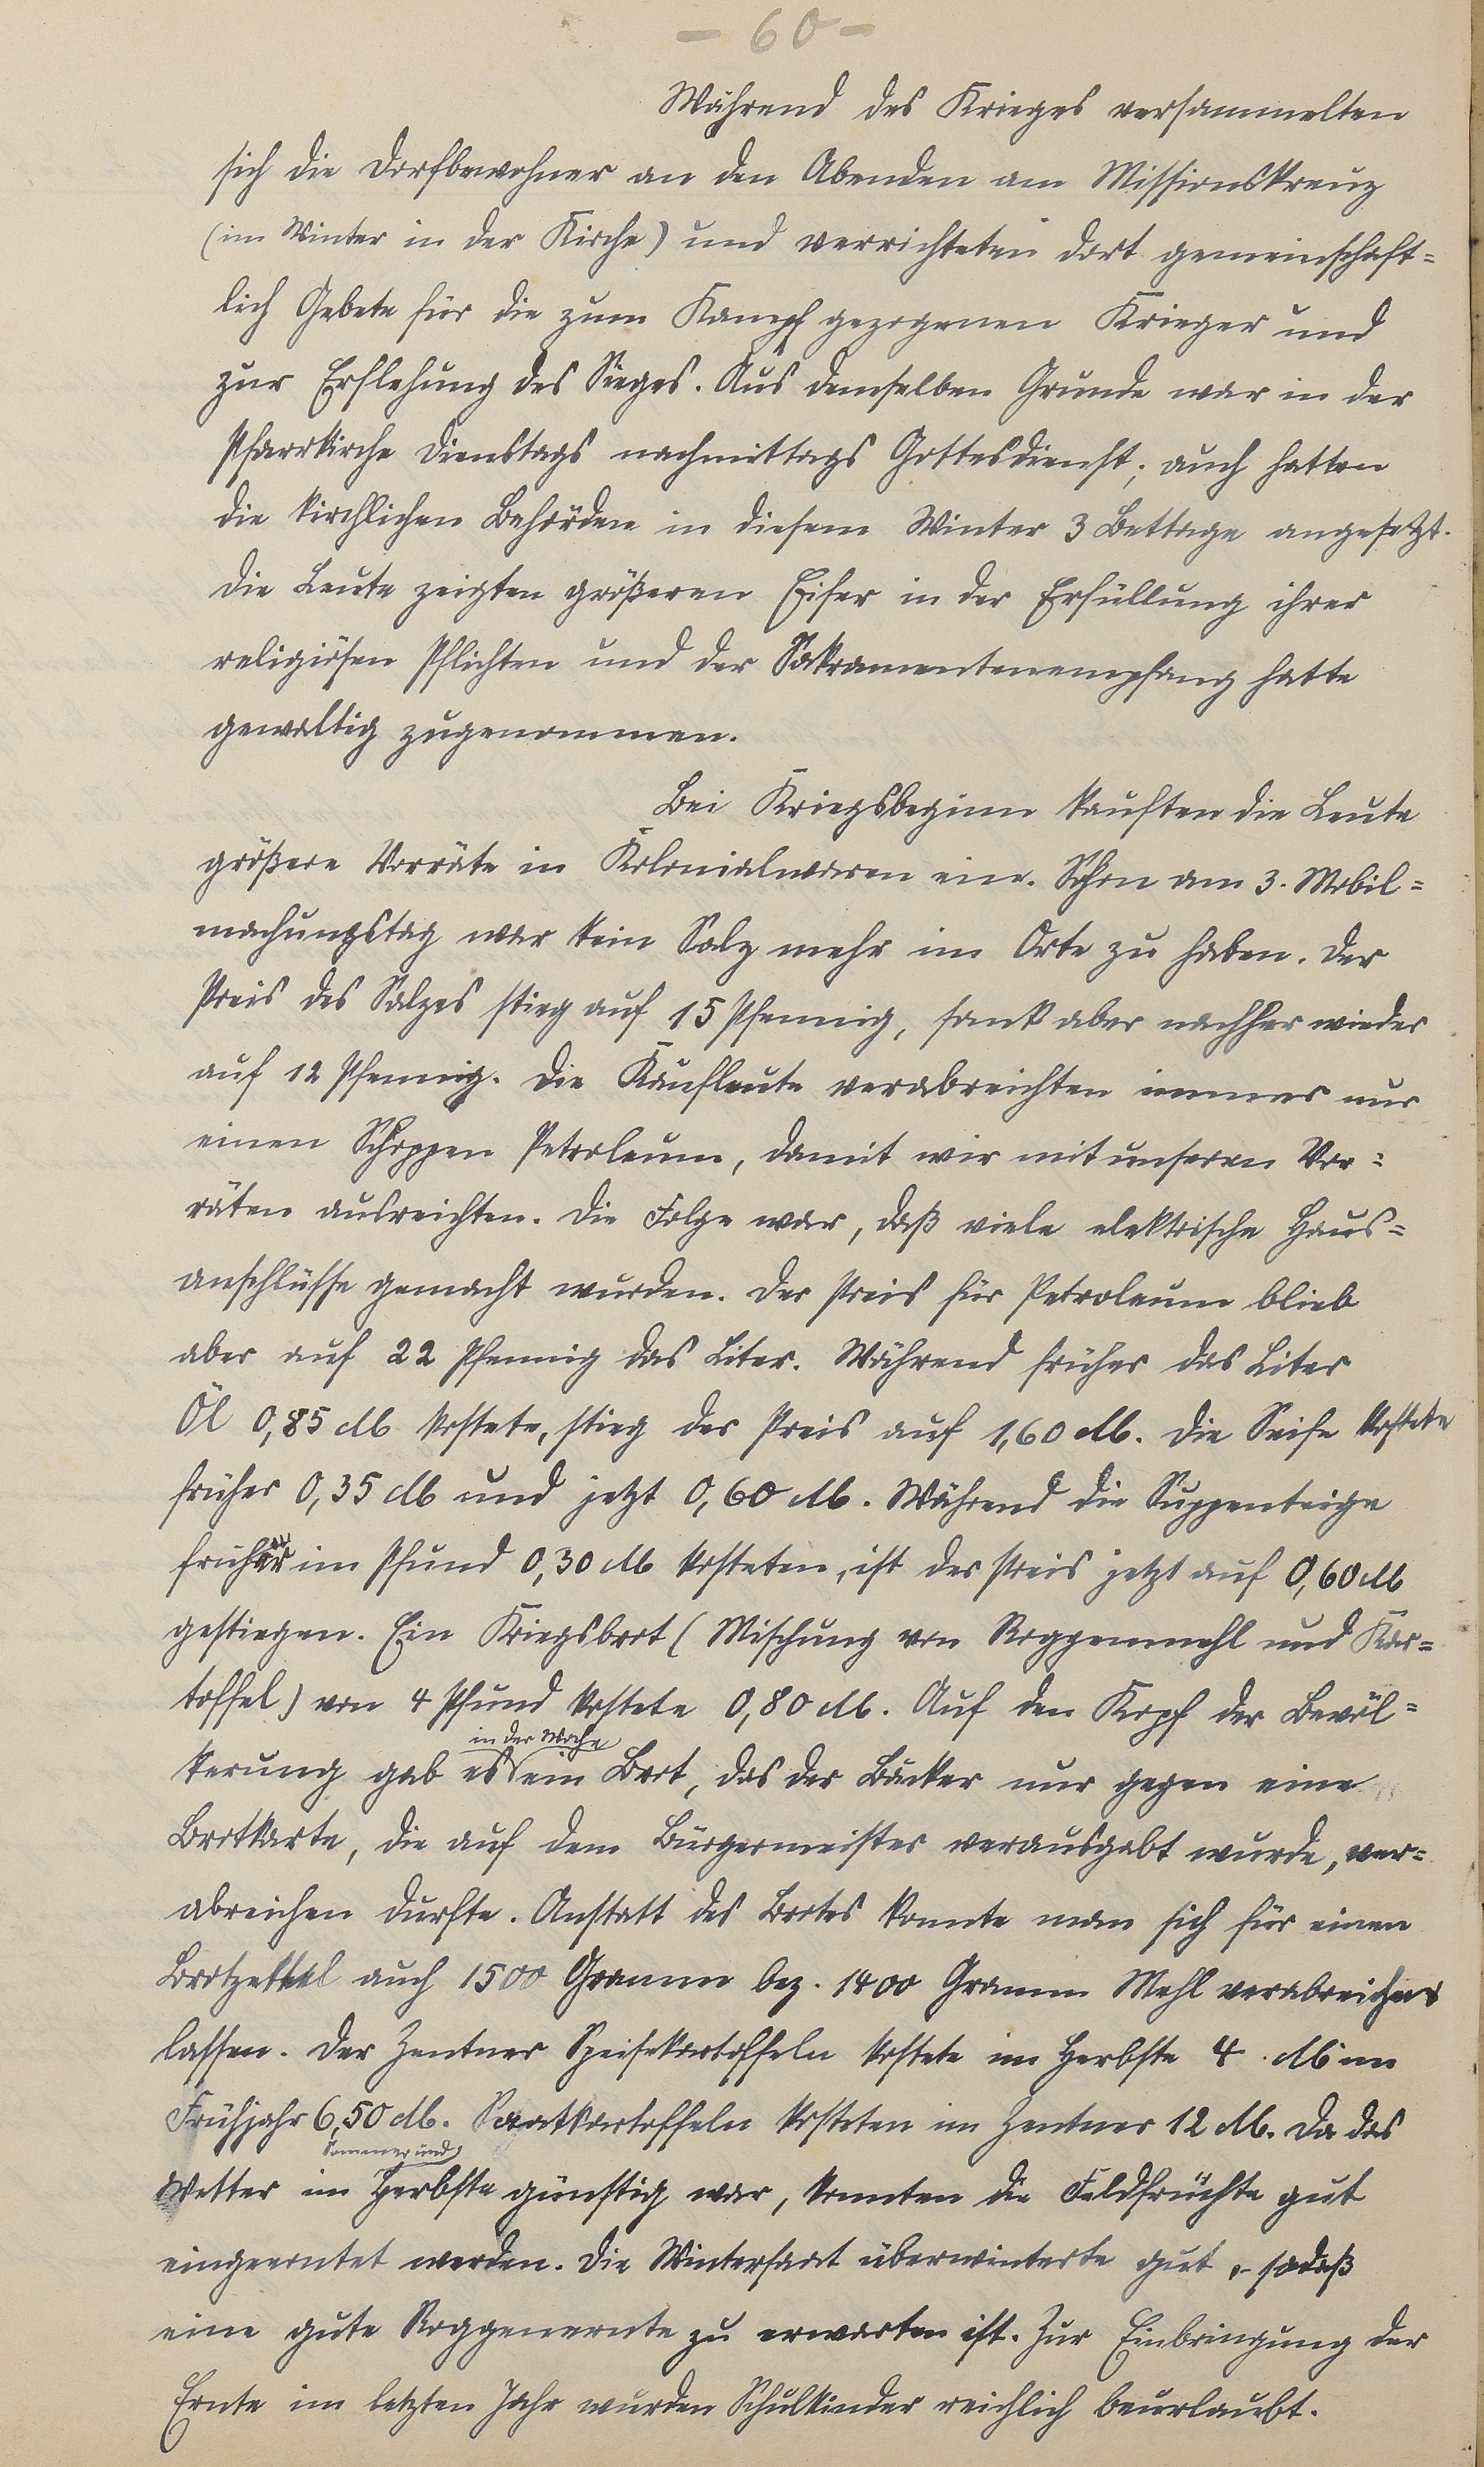 - 60 -
Während des Krieges versammelten
sich die Dorfbewohner an den Abenden am Missionskreuz
(im Winter in der Kirche) und verrichteten dort gemeinschaft=
lich Gebete für die zum Kampf gezogenen Krieger und
zur Erflehung des Sieges. Aus demselben Grunde war in der
Pfarrkirche Dienstags nachmittags Gottesdienst; auch hatten
die kirchlichen Behörden in diesem Winter 3 Bettage angesetzt.
Die Leute zeigten größeren Eifer in der Erfüllung ihrer
religiösen Pflichten und der Sakramentenempfang hatte
gewaltig zugenommen.
Bei Kriegsbeginn kauften die Leute
größere Vorräte in Kolonialwaren ein. Schon am 3. Mobil=
machungstag war kein Salz mehr im Orte zu haben. Der
Preis des Salzes stieg auf 15 Pfennig, sank aber nachher wieder
auf 12 Pfennig. Die Kaufleute verabreichten immer nur
einen Schoppen Petroleum, damit wir mit unseren Vor=
räten ausreichten. Die Folge war, daß viele elektrische Haus=
anschlüsse gemacht wurden. Der Preis für Petroleum blieb
aber auf 22 Pfennig das Liter. Während früher das Liter
Öl 0,85 M kostete, stieg der Preis auf 1,60 M. Die Seife kostete
früher 0,35 M und jetzt 0,60 M. Während die Suppenteige
früher im Pfund 0,30 M kosteten, ist der Preis jetzt auf 0,60 M
gestiegen. Ein Kriegsbrot (Mischung von Roggenmehl und Kar=
toffel) von 4 Pfund kostete 0,80 M. Auf den Kopf der Bevöl=
in der Woche
kerung gab es ein Brot, das der Bäcker nur gegen eine
Brotkarte, die auf dem Bürgermeister verausgabt wurde, ver=
abreichen durfte. Anstatt des Brotes konnte man sich für einen
Brotzettel auch 1500 Gramm bez. 1400 Gramm Mehl verabreichen
lassen. Der Zentner Speisekartoffeln kostete im Herbste 4 M im
Frühjahr 6,50 M. Saatkartoffeln kosteten im Zentner 12 M. Da das
Sommer und
Wetter im Herbste günstig war, konnten die Feldfrüchte gut
eingeerntet werden. Die Wintersaat überwinterte gut, sodaß
eine gute Roggenernte zu erwarten ist. Zur Einbringung der
Ernte im letzten Jahr wurden Schulkinder reichlich beurlaubt.